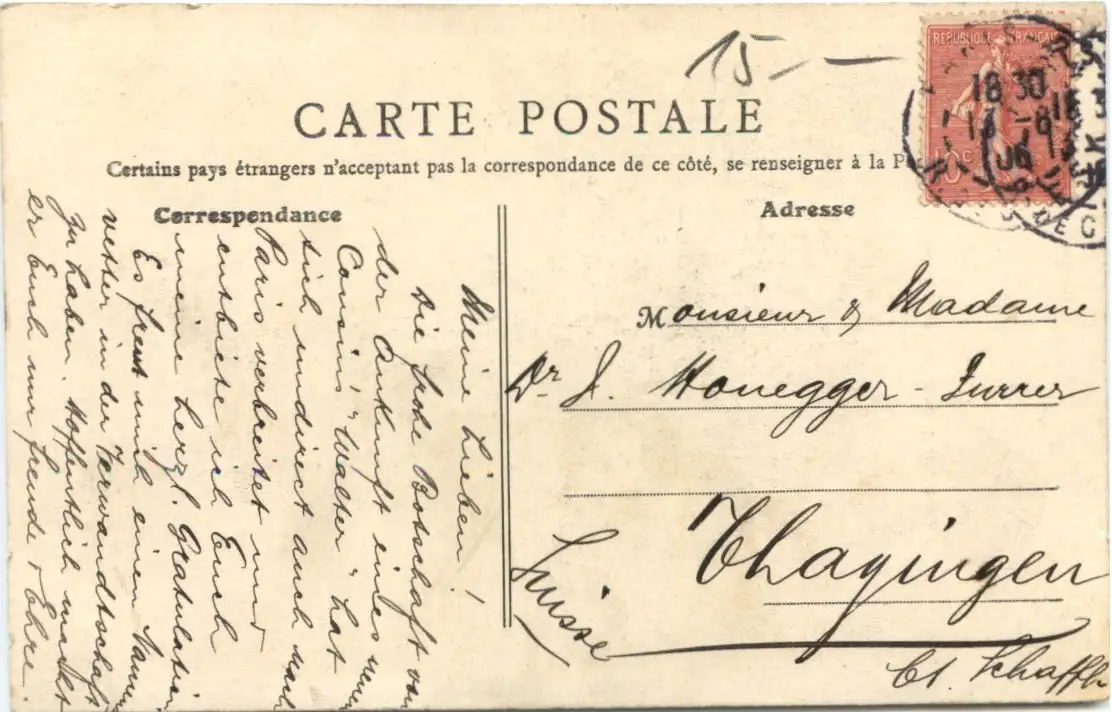 15.—
RÉPUBLIQUE FRANÇAISE
18 30
13 -8
06
CARTE POSTALE
Certains pays étrangers n'acceptent pas la correspondance de ce côté, se renseigner à la P
Correspondance
Meine Lieben!
Die frohe Botschaft von
der Ankunft eines neuen
Cousin's "Walter" hat
sich indirect auch nach
Paris verbreitet und
entbiete ich Euch
meine herzl. Gratulation
Es freut mich einen
vetter in der Verwandtschaft
zu haben. Hoffentlich macht
er Euch nur freude & Ehre.
Adresse
Monsieur & Madame
Dr. J. Honegger-Furrer
Thayingen
Suisse
Ct. Schaffh.